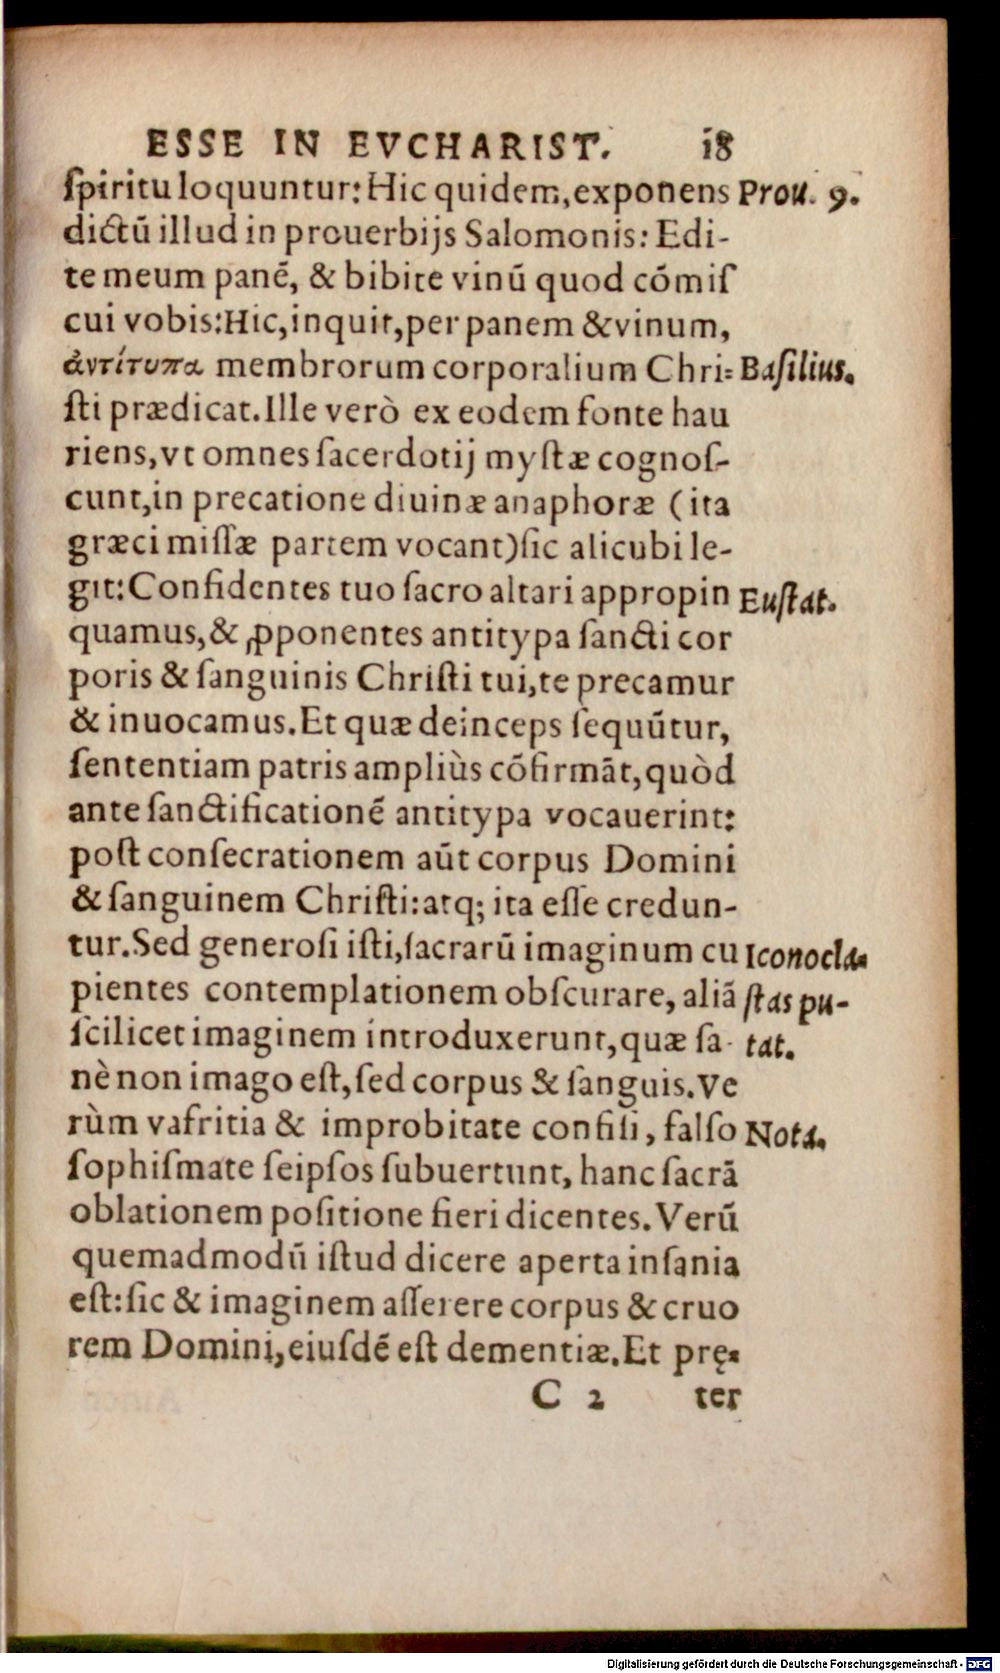 ESSE IN EVCHARIST. 18
ſpiritu loquuntur: Hic quidem, exponens Prou. 9.
dictū illud in prouerbijs Salomonis: Edi-
te meum panē, & bibite vinū quod cōmiſ
cui vobis: Hic, inquit, per panem & vinum,
ἀντίτυπα membrorum corporalium Chri= Baſilius.
ſti prædicat. Ille verò ex eodem fonte hau
riens, vt omnes ſacerdotij myſtæ cognoſ-
cunt, in precatione diuinæ anaphoræ (ita
græci miſſæ partem vocant) ſic alicubi le-
git: Confidentes tuo ſacro altari appropin Euſtat.
quamus, & ꝓponentes antitypa ſancti cor
poris & ſanguinis Chriſti tui, te precamur
& inuocamus. Et quæ deinceps ſequūtur,
ſententiam patris ampliùs cōfirmāt, quòd
ante ſanctificationē antitypa vocauerint:
poſt conſecrationem aūt corpus Domini
& ſanguinem Chriſti: atq; ita eſſe credun-
tur. Sed generoſi iſti, ſacrarū imaginum cu Iconocla=
pientes contemplationem obſcurare, aliā ſtas pu-
ſcilicet imaginem introduxerunt, quæ ſa- tat.
nè non imago eſt, ſed corpus & ſanguis. Ve
rùm vafritia & improbitate confiſi, falſo Nota.
ſophiſmate ſeipſos ſubuertunt, hanc ſacrā
oblationem poſitione fieri dicentes. Verū
quemadmodū iſtud dicere aperta inſania
eſt: ſic & imaginem aſſerere corpus & cruo
rem Domini, eiuſdē eſt dementiæ. Et prę=
C 2 ter
Digitalisierung gefördert durch die Deutsche Forschungsgemeinschaft - DFG